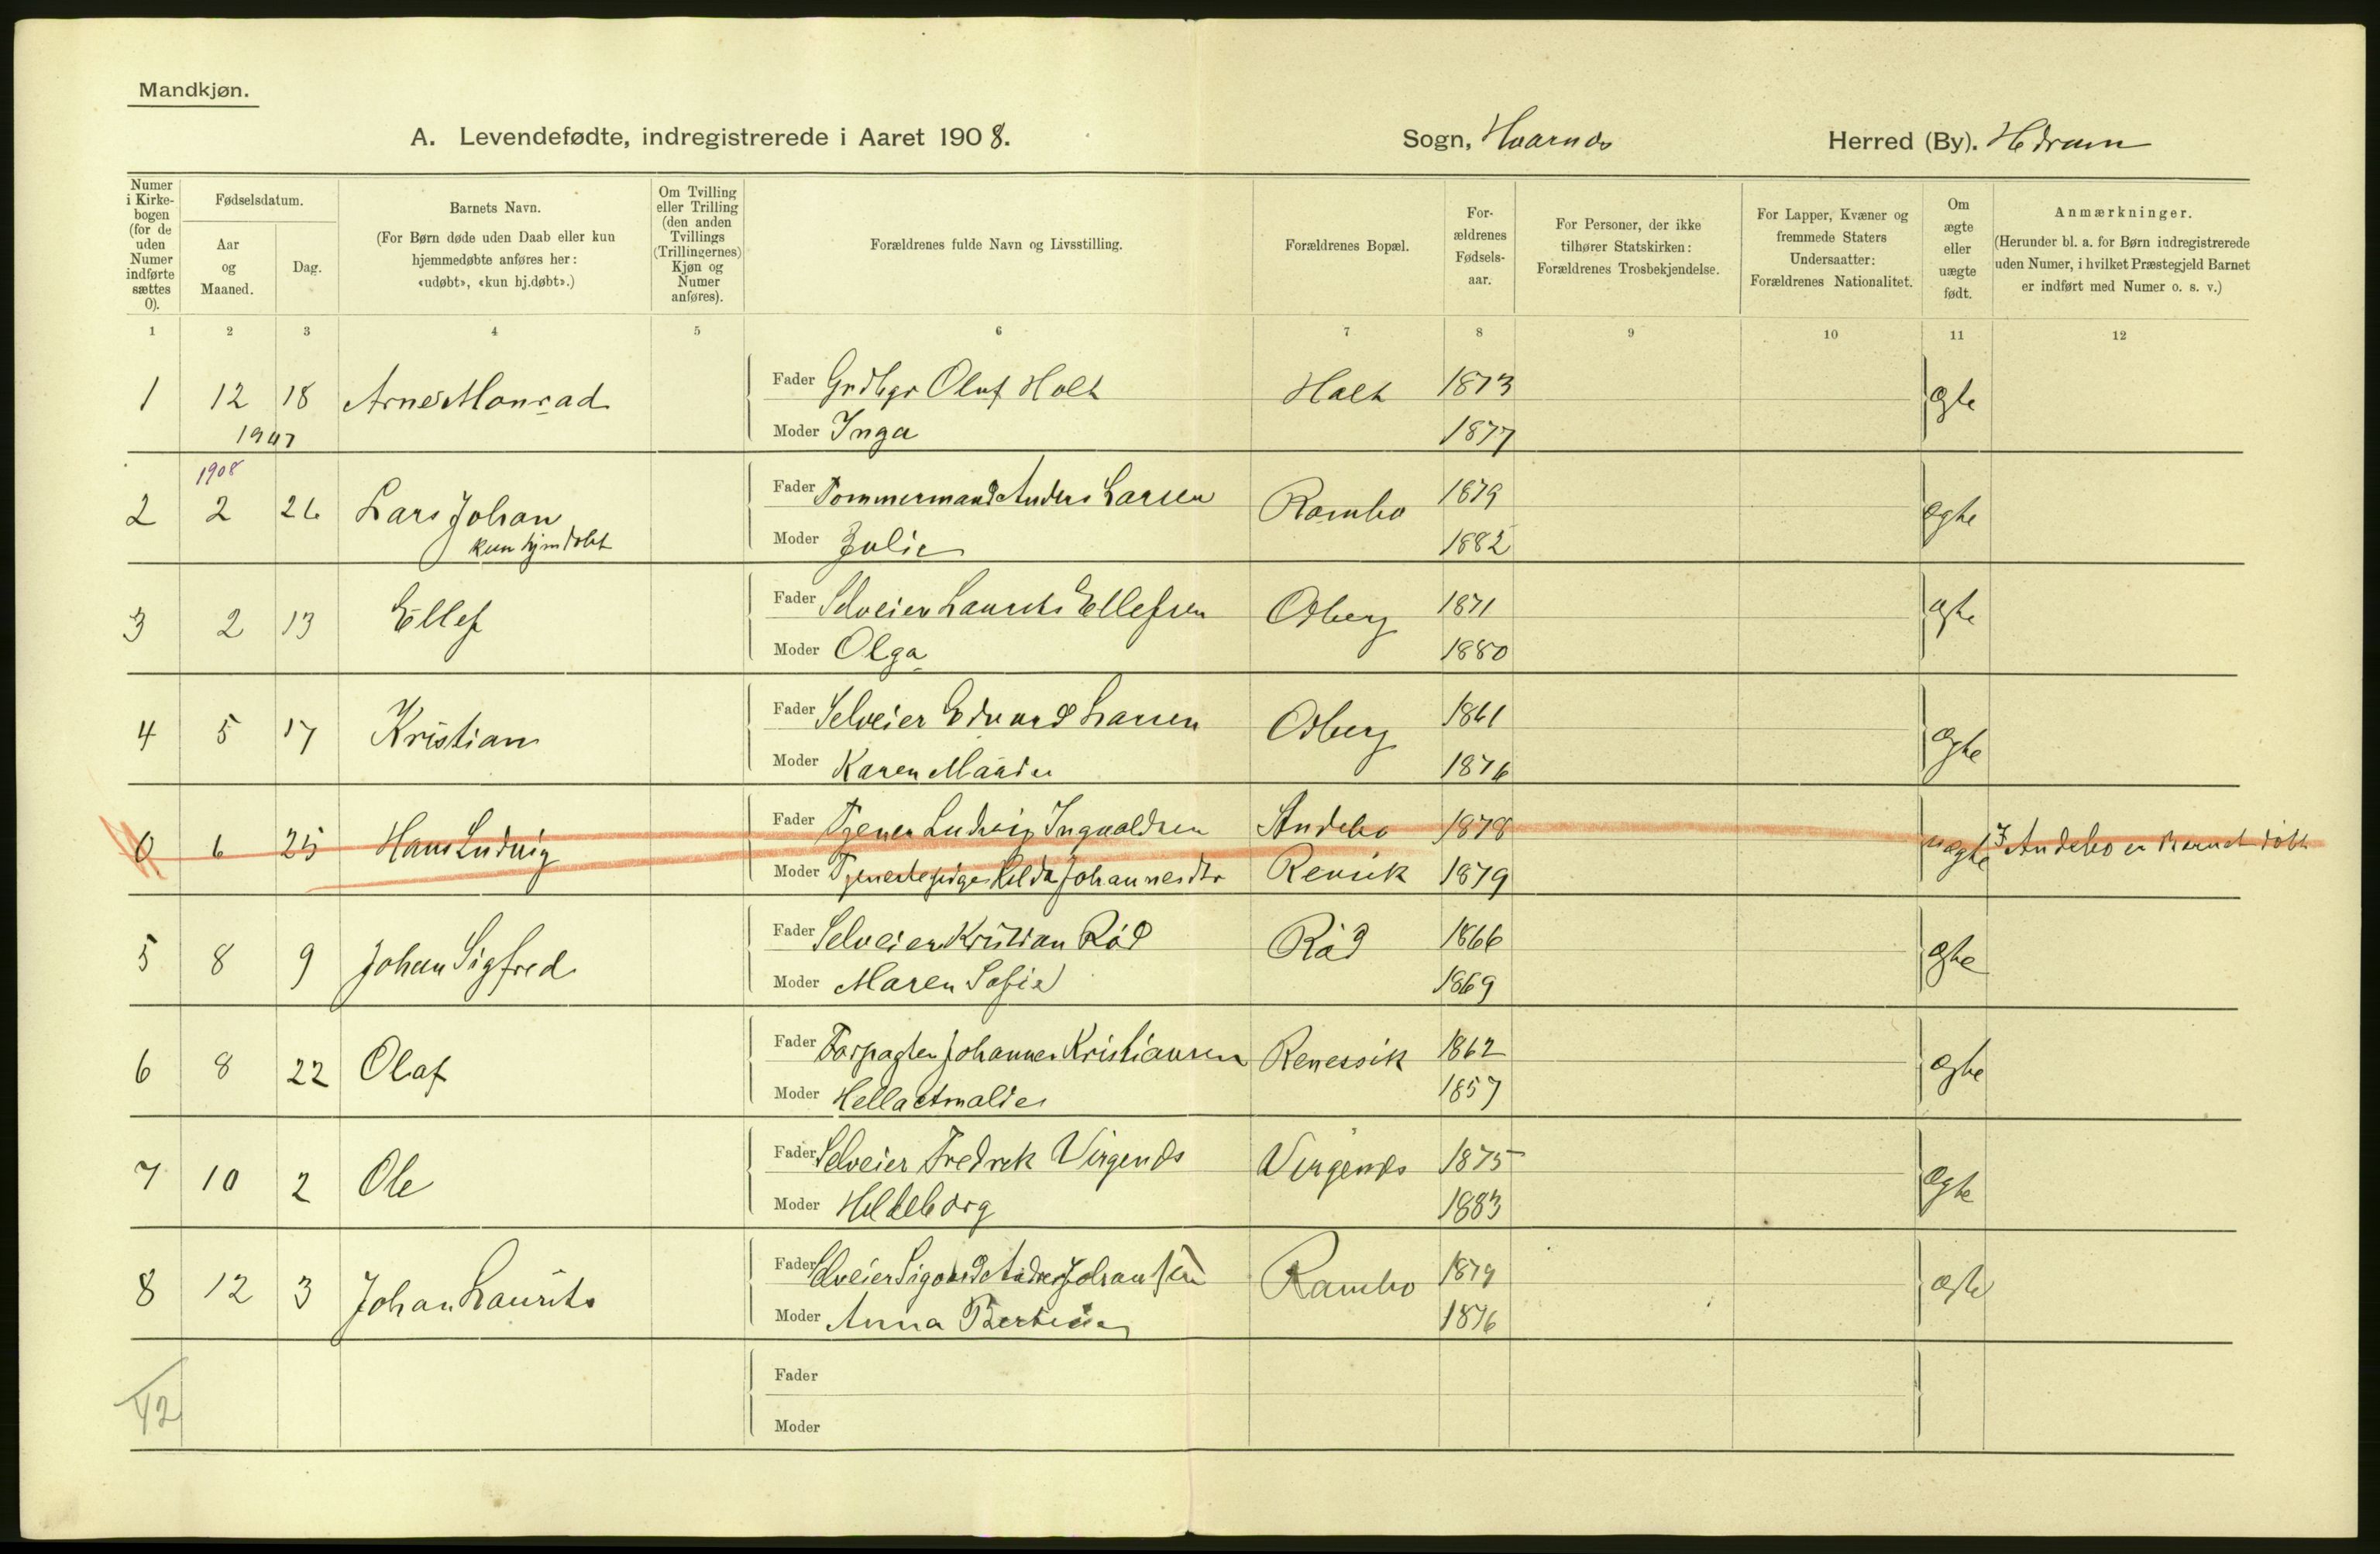 Mandkjøn.
A. Levendefødte, indregistrerede i Aaret 1908. Sogn, Hvarnes Herred (By). Hedrum
Numer i Kirkebogen (for de uden Numer indførte sættes 0).
Fødselsdatum.
Aar og Maaned.
Dag.
Barnets Navn.
(For Børn døde uden Daab eller kun hjemmedøbte anføres her: «udøbt», «kun hj.døbt».)
Om Tvilling eller Trilling (den anden Tvillings (Trillingernes) Kjøn og Numer anføres).
Forældrenes fulde Navn og Livsstilling.
Forældrenes Bopæl.
For-ældrenes Fødsels-aar.
For Personer, der ikke tilhører Statskirken: Forældrenes Trosbekjendelse.
For Lapper, Kvæner og fremmede Staters Undersaatter: Forældrenes Nationalitet.
Om ægte eller uægte født.
Anmærkninger.
(Herunder bl. a. for Børn indregistrerede uden Numer, i hvilket Præstegjeld Barnet er indført med Numer o. s. v.)
1 2 3 4 5 6 7 8 9 10 11 12
1 12 18 Arne Monrad Fader Grdbgr Oluf Holt Holt 1873 ægte
1907 Moder Inga 1877
1908
2 2 26 Lars Johan Fader Tommermand Anders Larsen Rambo 1879 ægte
kun hjmdøbt Moder Julie 1882
3 2 13 Ellef Fader Selveier Laurits Ellefsen Odberg 1871 ægte
Moder Olga 1880
4 5 17 Kristian Fader Selveier Edvard Larsen Odberg 1861 ægte
Moder Karen Mathea 1876
0 6 25 Hans Ludvig Fader Tjener Ludvig Ingvaldsen Andebo 1878 uægte I Andebo er Barnet døbt
Moder Tjenestepige Hilda Johannesdtr Rensik 1879
5 8 9 Johan Sigfred Fader Selveier Kristian Rød Rød 1866 ægte
Moder Maren Sofie 1869
6 8 22 Olaf Fader Forpagter Johannes Kristiansen Renessik 1862 ægte
Moder Hella Amalie 1857
7 10 2 Ole Fader Selveier Fredrik Virgenes Virgenes 1875 ægte
Moder Hildeborg 1883
8 12 3 Johan Laurits Fader Selveier Sigvard Andreas Johansen Rambo 1879 ægte
Moder Anna Bertine 1876
Fader
Moder